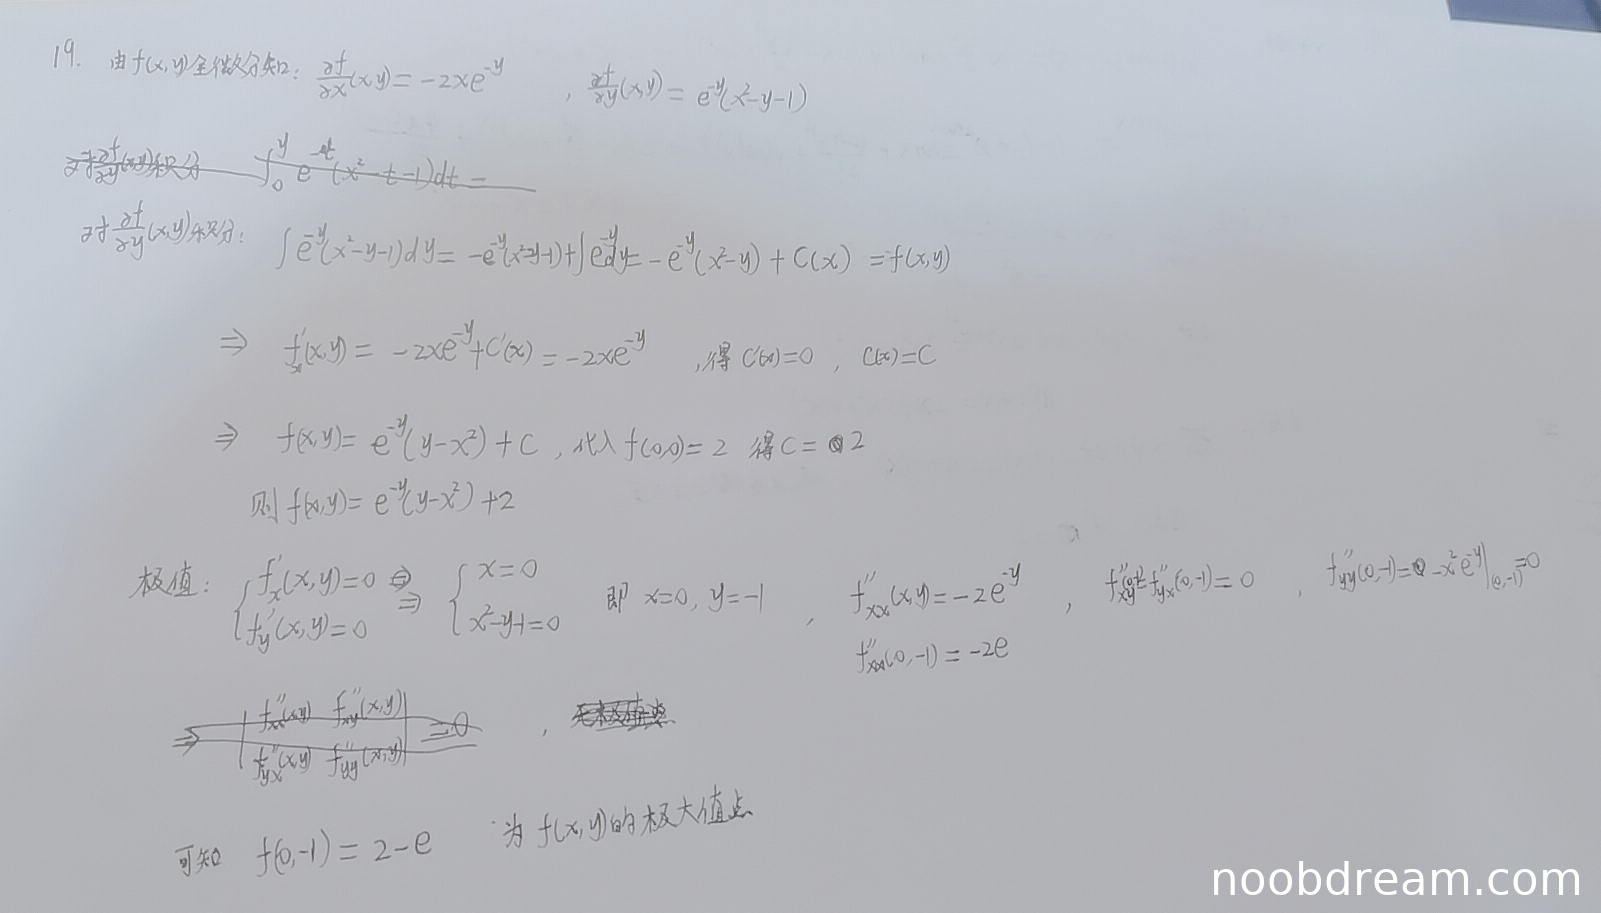 19. 由f(x,y)全微分知: ∂f/∂x(x,y) = -2xe^{-y} , ∂f/∂y(x,y) = e^{-y}(x²-y-1)
对∂f/∂y(x,y)积分 ∫₀^y e^{-t}(x²-t-1)dt =
对∂f/∂y(x,y)积分: ∫e^{-y}(x²-y-1)dy = -e^{-y}(x²-y-1)+∫e^{-y}dy = -e^{-y}(x²-y) + C(x) = f(x,y)
⇒ f'x(x,y) = -2xe^{-y}+C'(x) = -2xe^{-y} ,得 C'(x)=0 , C(x)=C
⇒ f(x,y) = e^{-y}(y-x²)+C , 代入 f(0,0)=2 得 C = 2
则 f(x,y) = e^{-y}(y-x²)+2
极值: { f'x(x,y)=0 f'y(x,y)=0 ⇒ { x=0 x²-y-1=0 即 x=0, y=-1 , f''xx(x,y)=-2e^{-y} , f''xy(0,-1)=f''yx(0,-1)=0 , f''yy(0,-1)= -x²e^{-y}|(0,-1)=0
f''xx(0,-1) = -2e
⇒ | f''xx(x,y) f''xy(x,y) f''yx(x,y) f''yy(x,y) | =0 ,
可知 f(0,-1) = 2-e 为 f(x,y)的极大值点
noobdream.com